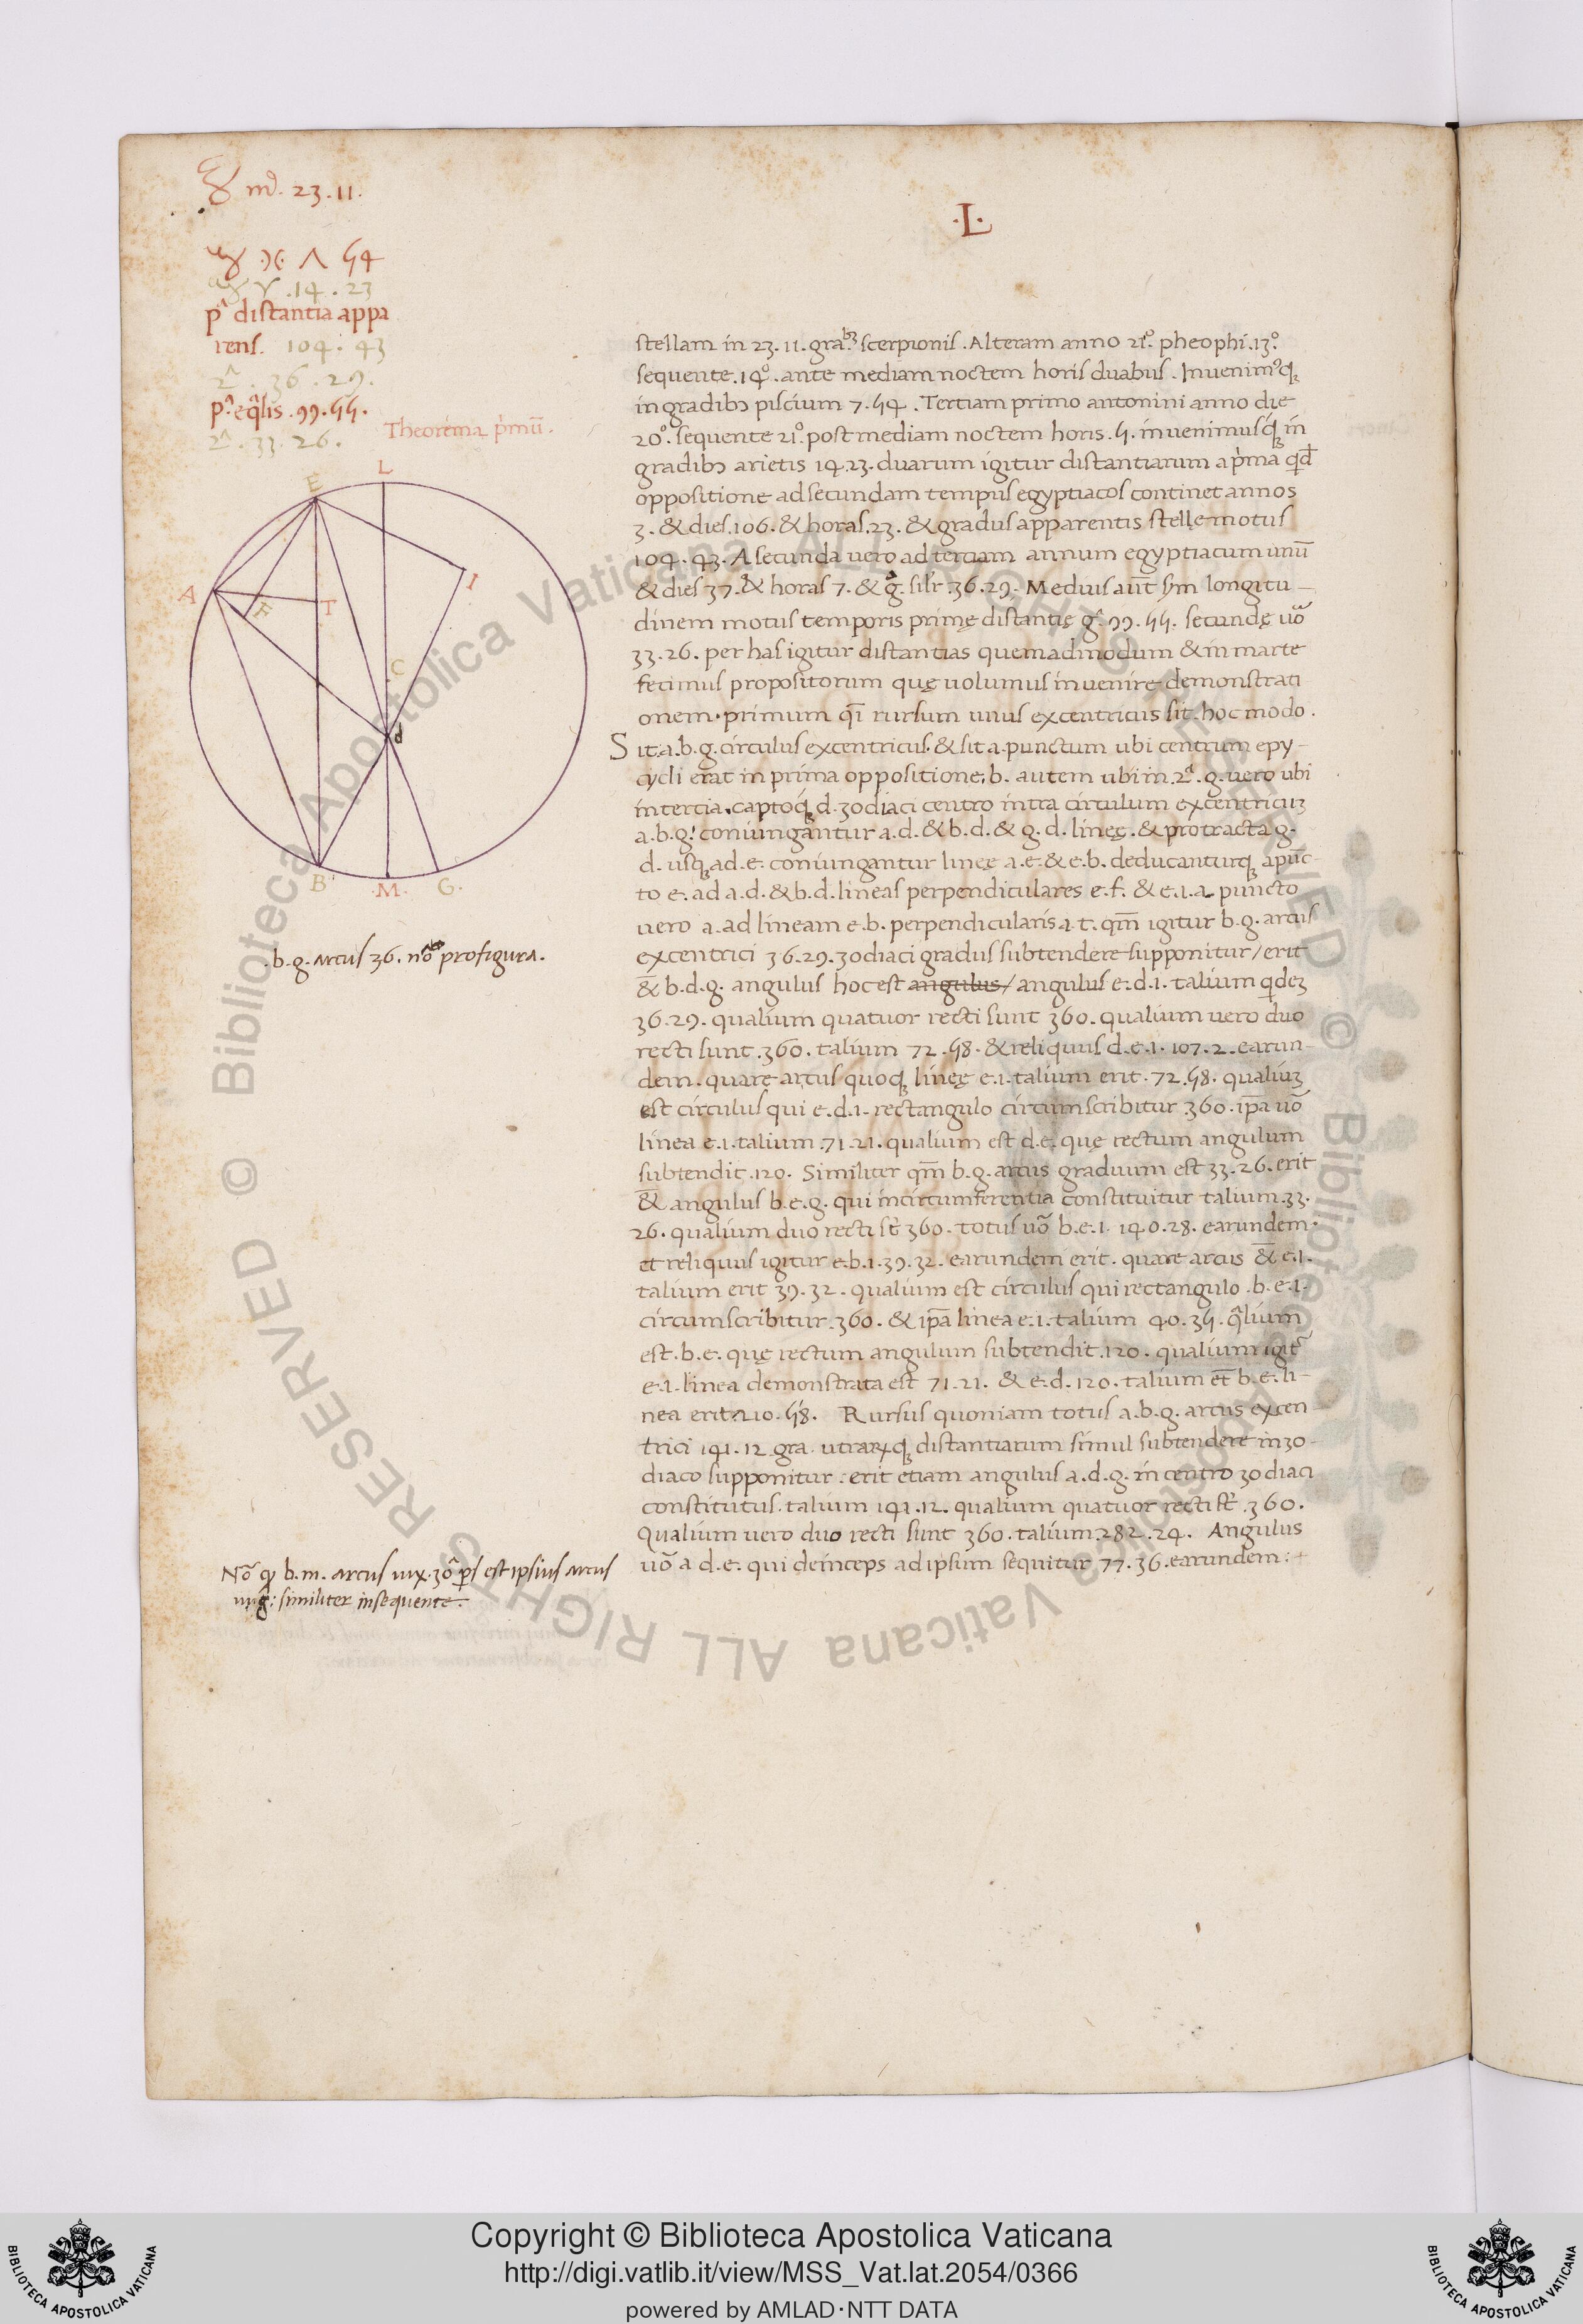 md. 23.11.
·L·
54
.14.23
pª distantia appa
rens. 104. 43
2ª. 36.29.
pª. eq̄lis. 99.55.
2ª. 33.26.
Theorema p'mū.
L
E
A
F
T
I
C
d
B
.M.
G.
stellam in 23.11. gra. scerpionis. Alteram anno 21º. pheophi. 13º.
sequente. 14º. ante mediam noctem horis duabus. Inuenim'q;
in gradib; piscium 7.54. Tertiam primo antonini anno die
20º. sequente 21º. post mediam noctem horis. 5. inuenimusq; in
gradib; arietis 14.23. duarum igitur distantiarum a p'ma qd'
oppositione ad secundam tempus egyptiacos continet annos
3. & dies. 106. & horas. 23. & gradus apparentis stellę motus
104.43. A secunda uero ad tertiam annum egyptiacum unū
& dies 37. & horas 7. & g. sil'r. 36.29. Medius aūt sȳm longitu-
dinem motus temporis primę distantię g. 99.55. secundę uō
33.26. per has igitur distantias quemadmodum & in marte
fecimus propositorum quę uolumus inuenire demonstrati
onem. primum qī rursum unus excentricus sit. hoc modo.
Sit. a.b.g. circulus excentricus. & sit a. punctum ubi centrum epy-
cycli erat in prima oppositione, b. autem ubi in 2ª. g. uero ubi
in tertia. captoq; d. zodiaci centro intra circulum excentricuz
a.b.g. coniungantur a.d. & b.d. & g.d. linęę. & protracta g.
d. usq; ad. e. coniungantur linęę a.e. & e.b. deducanturq; a pūc-
to e. ad a.d. & b.d. lineas perpendiculares e.f. & e.i. a puncto
uero a. ad lineam e.b. perpendicularis a.t. qm̄ igitur b.g. arcus
excentrici 36.29. zodiaci gradus subtendere supponitur/ erit
& b.d.g. angulus hoc est angulus/ angulus e.d.i. talium qdez
36.29. qualium quatuor recti sunt 360. qualium uero duo
recti sunt. 360. talium 72.58. & reliquus d.e.i. 107.2. earun-
dem. quare arcus quoq; linęę e.i. talium erit. 72.58. qualiuz
est circulus qui e.d.i. rectangulo circumscribitur 360. ip̄a uō
linea e.i. talium. 71.21. qualium est d.e. quę rectum angulum
subtendit. 120. Similiter qm̄ b.g. arcus graduum est 33.26. erit
& angulus b.e.g. qui in circumferentia constituitur talium. 33.
26. qualium duo recti st̄ 360. totus uō b.e.i. 140.28. earundem.
et reliquus igitur e.b.i. 39.32. earundem erit. quare arcus & e.i.
talium erit 39.32. qualium est circulus qui rectangulo. b.e.i.
circumscribitur. 360. & ip̄a linea e.i. talium 40.35. q̄lium
est. b.e. quę rectum angulum subtendit. 120. qualium igit'
e.i. linea demonstrata est 71.21. & e.d. 120. talium et̄ b.e. li-
nea erit 210.58. Rursus quoniam totus a.b.g. arcus excen
trici 141.12. gra. utrarumq; distantiarum simul subtendere in zo-
diaco supponitur: erit etiam angulus a.d.g. in centro zodiaci
constitutus. talium 141.12. qualium quatuor recti st̄. 360.
Qualium uero duo recti sunt 360. talium 282.24. Angulus
uō a d.e. qui deinceps ad ipsum sequitur 77.36. earundem:
.b.g. arcus 36. nō pro figura.
Nō b.m. arcus est ipsius arcus
similiter in sequente.
© Biblioteca Apostolica Vaticana ALL RIGHTS RESERVED © Biblioteca Apostolica Vaticana ALL RIGHTS RESERVED
Copyright © Biblioteca Apostolica Vaticana
http://digi.vatlib.it/view/MSS_Vat.lat.2054/0366
powered by AMLAD·NTT DATA
BIBLIOTECA APOSTOLICA VATICANA
BIBLIOTECA APOSTOLICA VATICANA